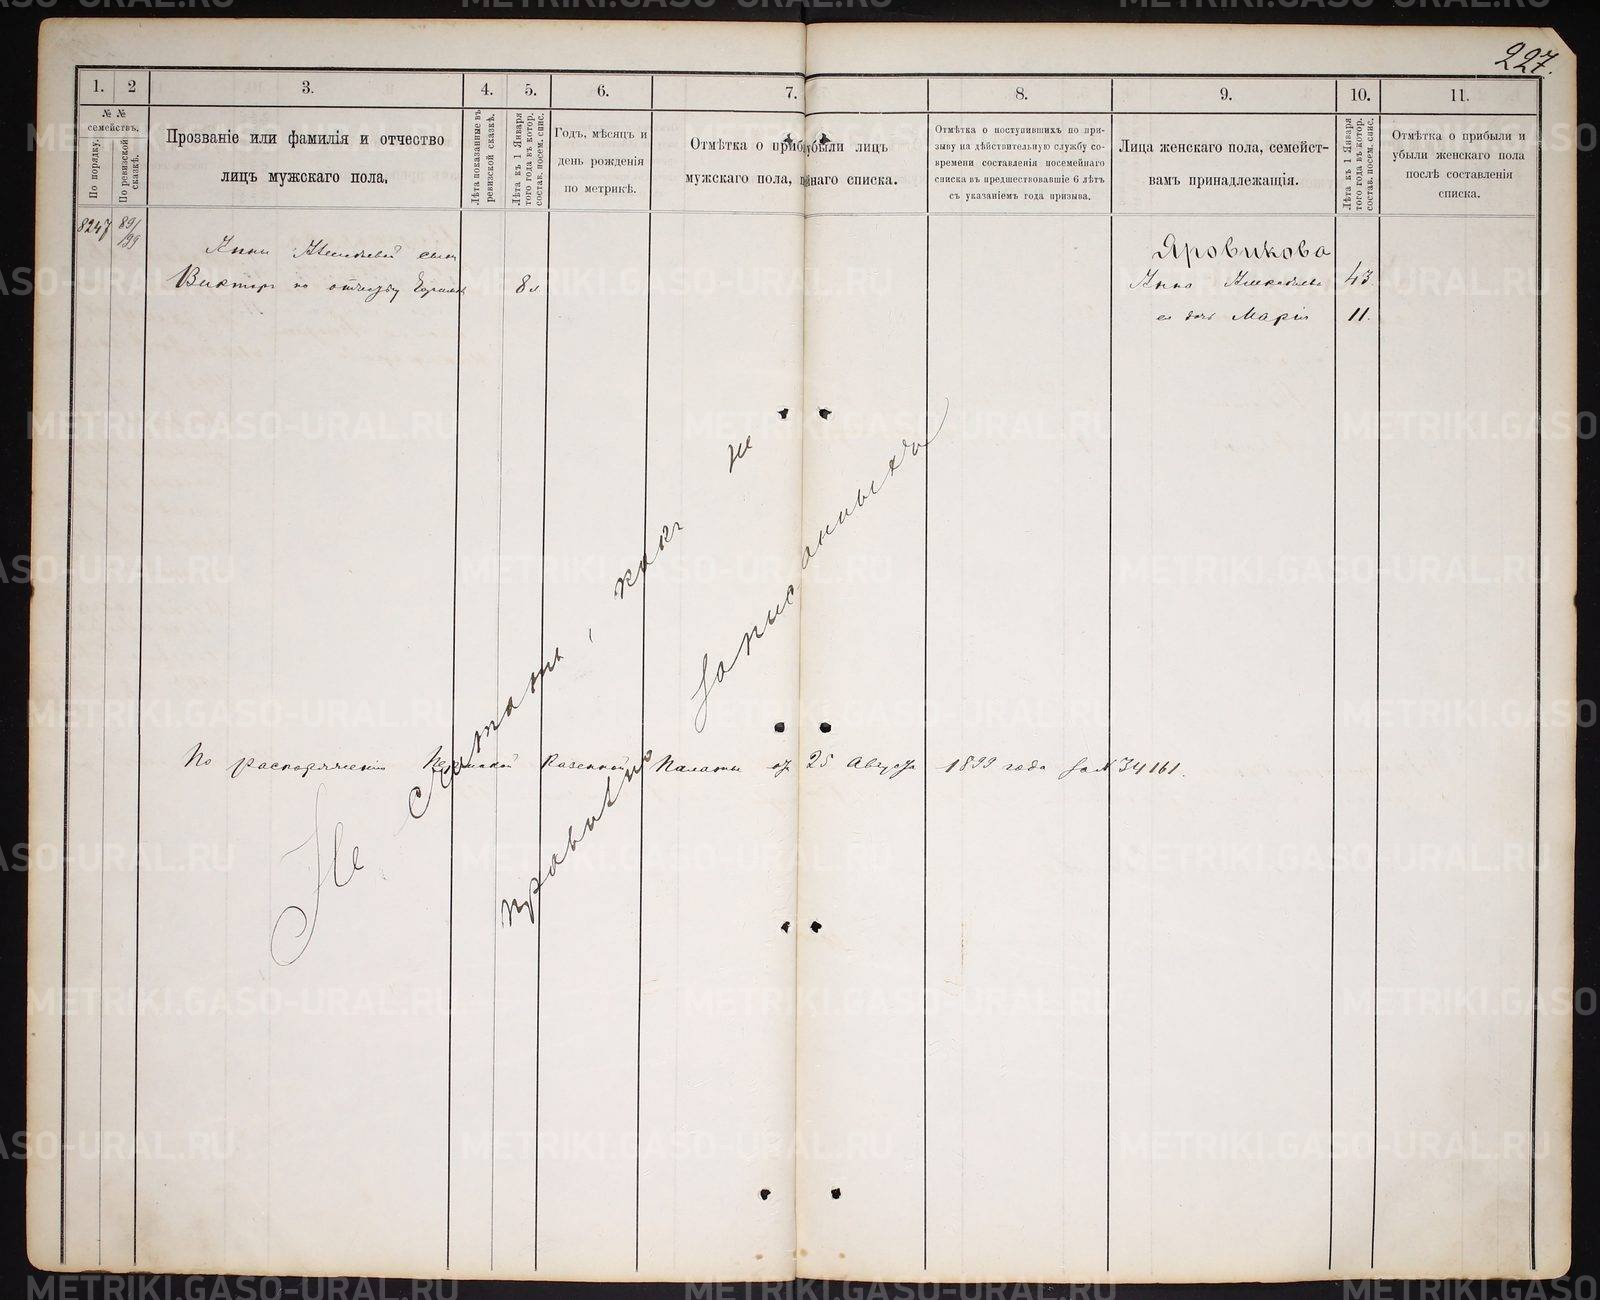 227.
1.
2
3.
4.
5.
6.
7.
8.
9.
10.
11.
№ №
семействъ.
По порядку.
По ревизской
сказкѣ.
Прозваніе или фамилія и отчество
лицъ мужскаго пола,
Лѣта показанные въ
ревизской сказкѣ.
Лѣта къ 1 Января
того года въ котор.
состав. посем. спис.
Годъ, мѣсяцъ и
день рожденія
по метрикѣ.
Отмѣтка о прибыли лицъ
мужскаго пола, наго списка.
Отмѣтка о поступившихъ по при-
зыву на дѣйствительную службу со-
времени составленія посемейнаго
списка въ предшествовавшіе 6 лѣтъ
съ указаніемъ года призыва.
Лица женскаго пола, семейст-
вамъ принадлежащія.
Лѣта къ 1 Января
того года въ котор.
состав. посем. спис.
Отмѣтка о прибыли и
убыли женскаго пола
послѣ составленія
списка.
8247
89/
199
Анны сын
Викторъ по отчеству
8 л.
Яровикова
Анна 43.
ея дочь Марія 11.
Не считать, какъ не
правильно записанныхъ
По распоряженію Пермской Казенной Палаты отъ 25 Августа 1899 года за № 34161.
METRIKI.GASO-URAL.RU